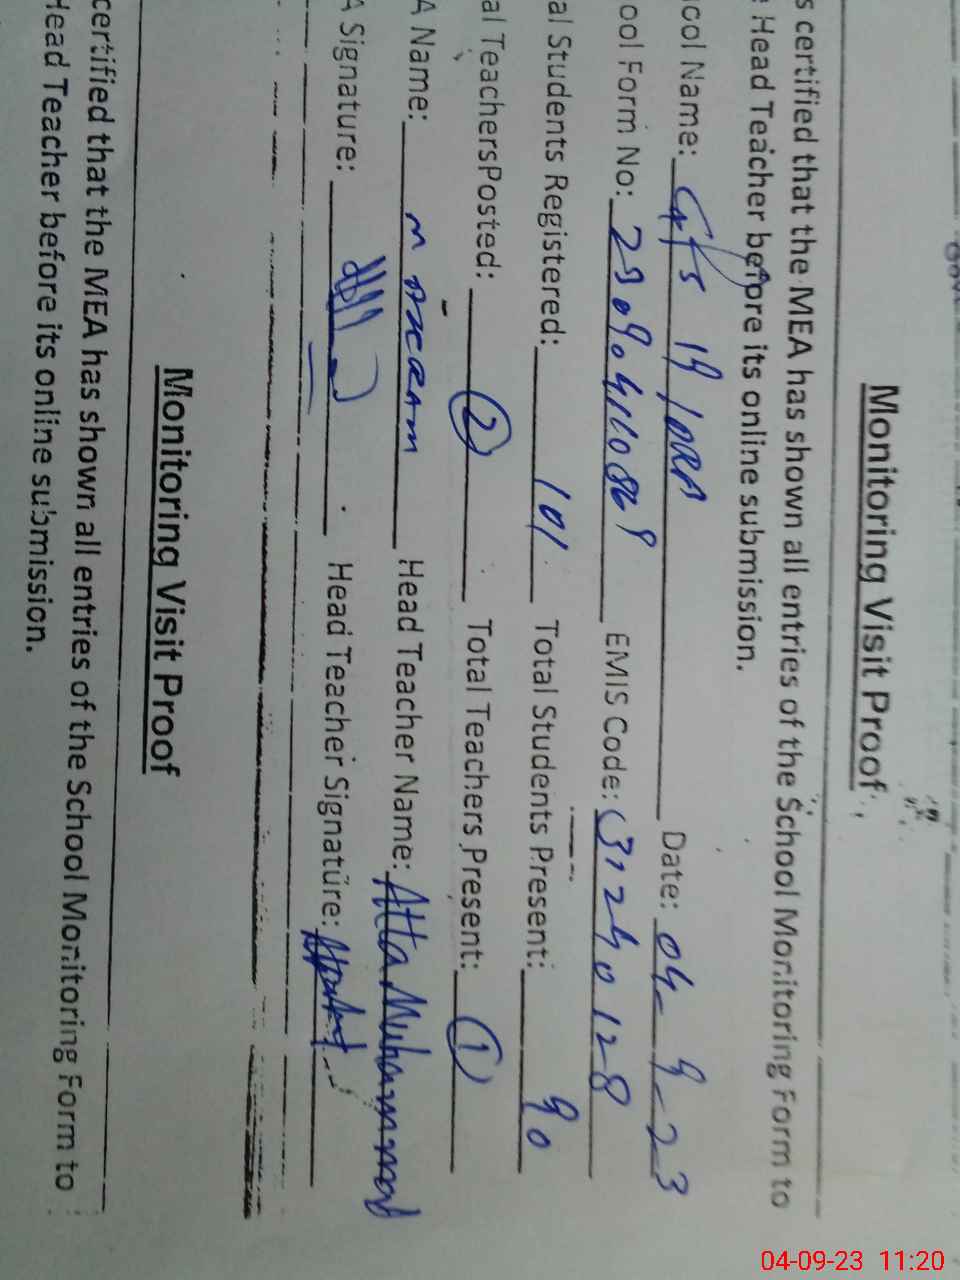 Monitoring Visit Proof
s certified that the MEA has shown all entries of the School Monitoring Form to
Head Teacher before its online submission.
ool Name: 19 Date: 04-9-23
ool Form No: EMIS Code: 31240128
al Students Registered: 101 Total Students Present: 90
al TeachersPosted: 2 Total Teachers Present: 1
A Name: M Head Teacher Name: Atta Muhammad
A Signature: Head Teacher Signature:
Monitoring Visit Proof
certified that the MEA has shown all entries of the School Monitoring Form to
Head Teacher before its online submission.
04-09-23 11:20